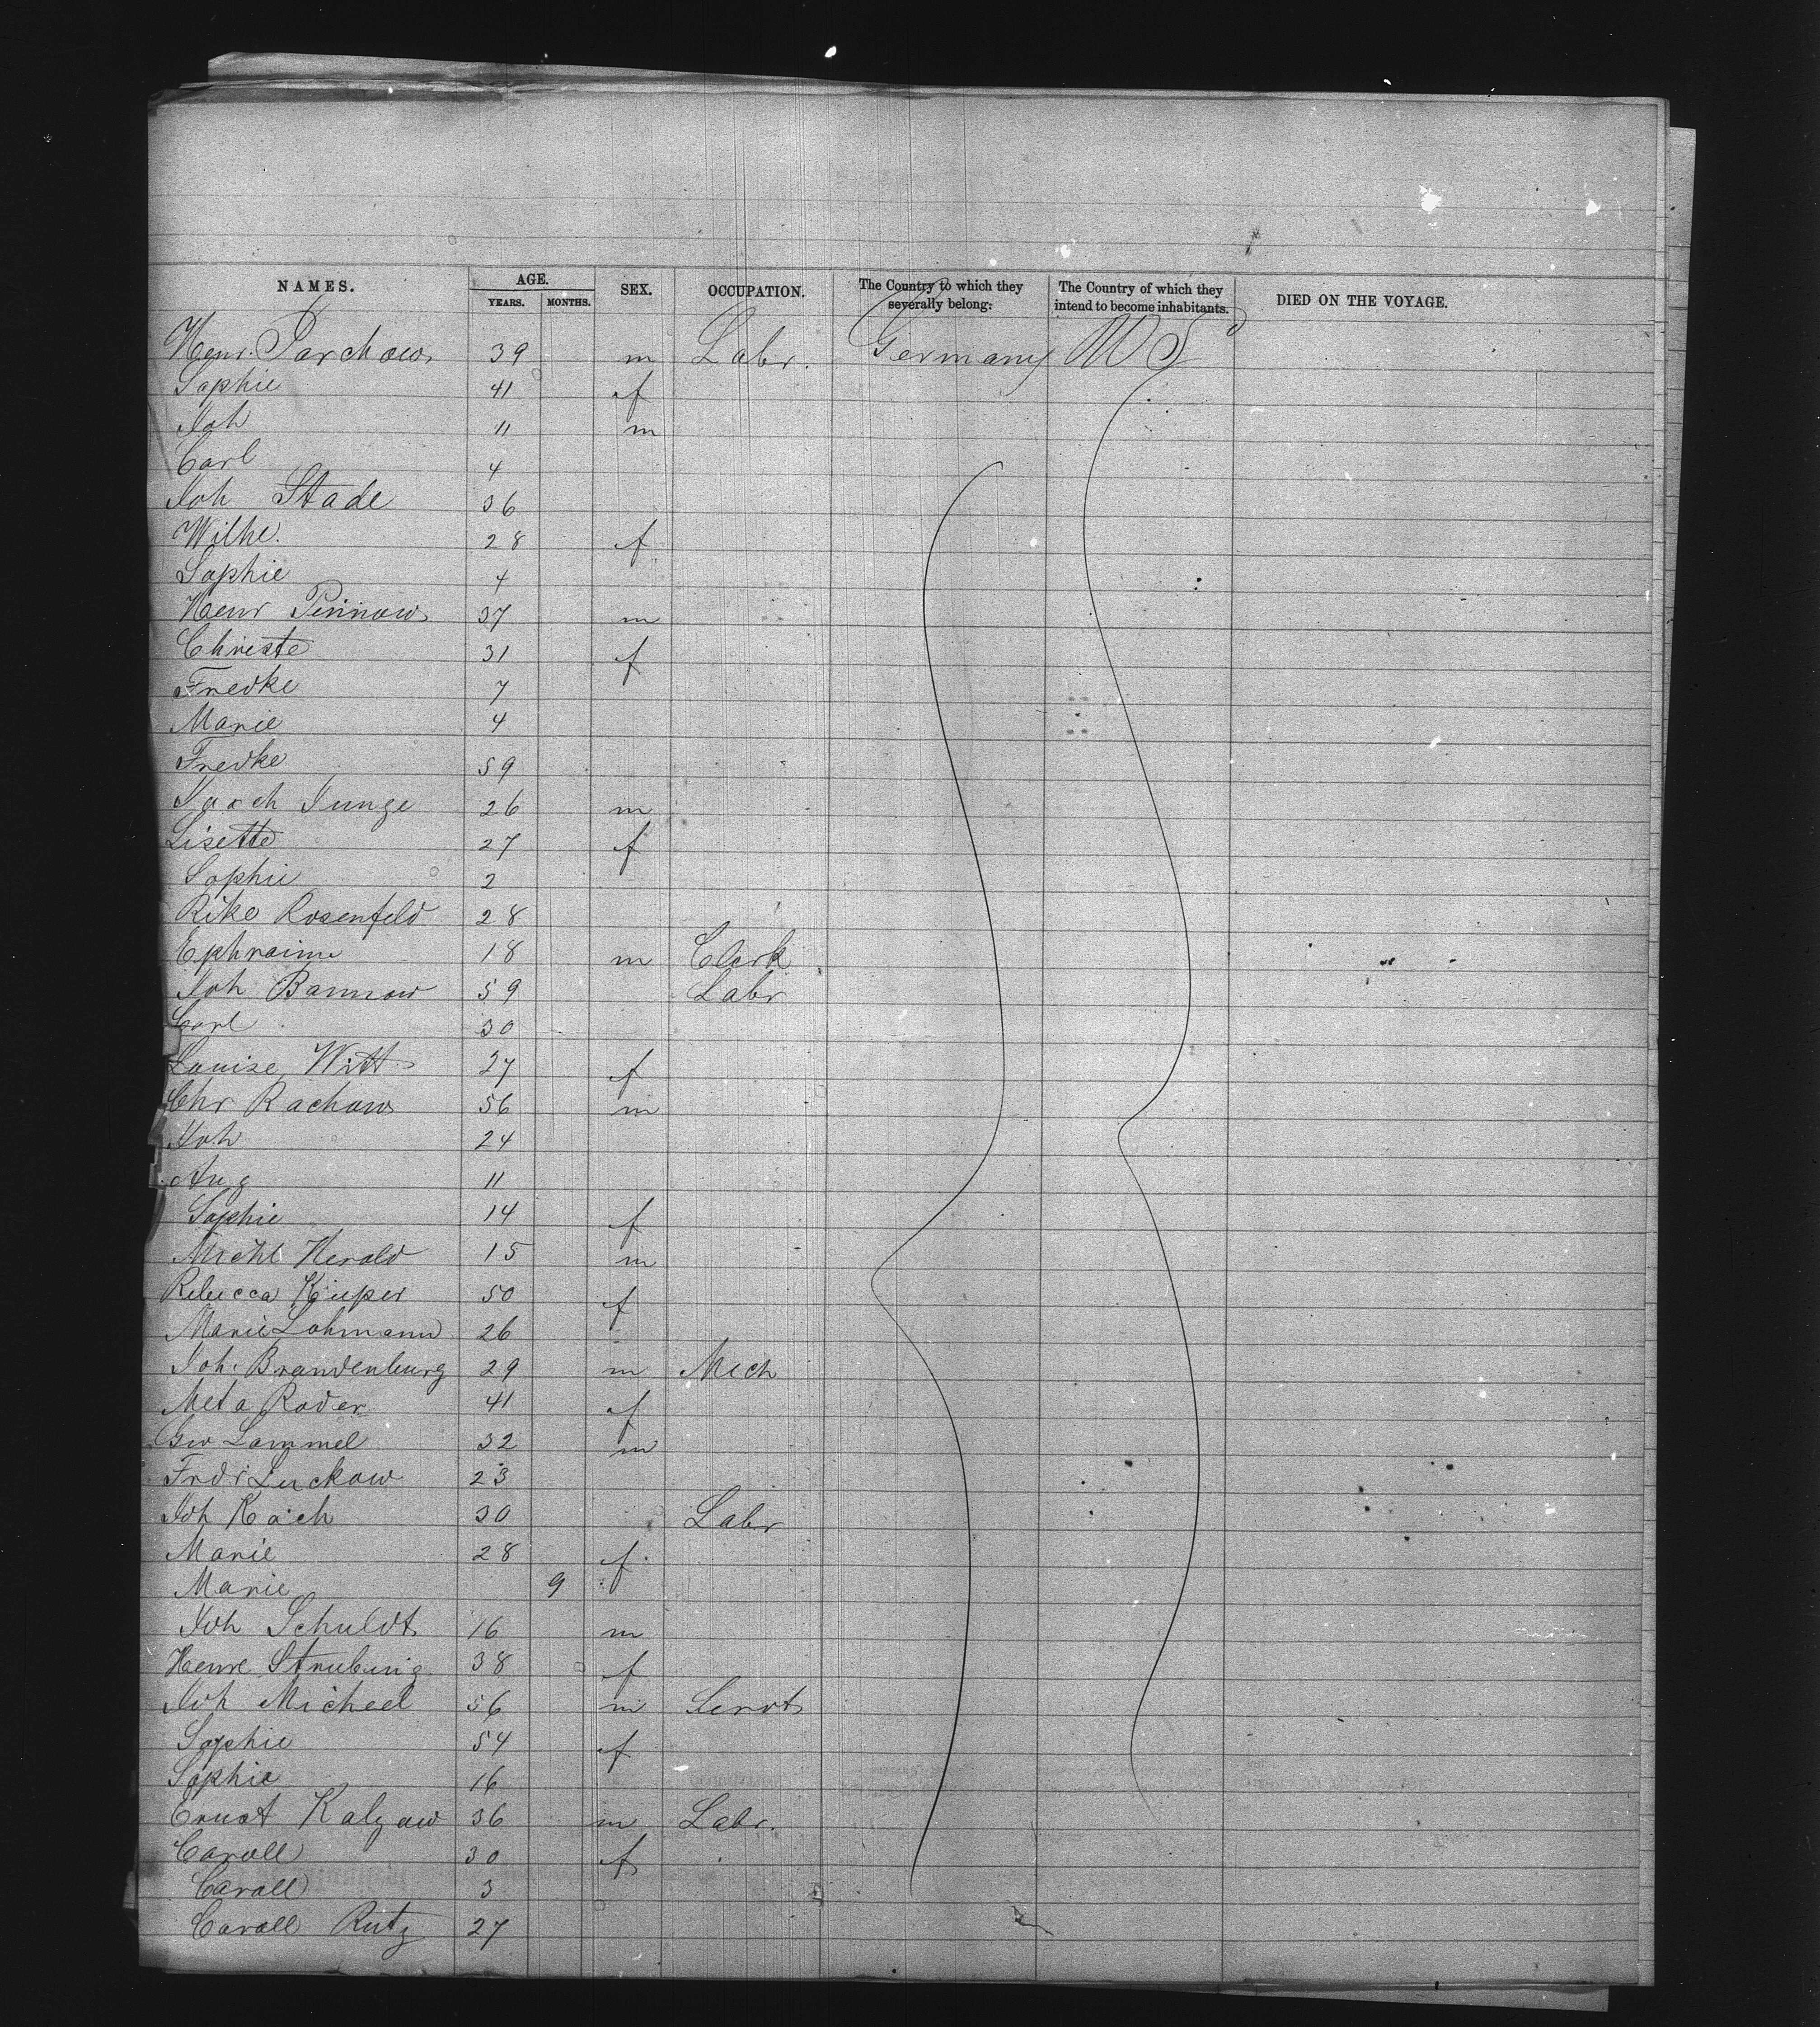 NAMES. AGE. SEX. OCCUPATION. The Country to which they severally belong: The Country of which they intend to become inhabitants. DIED ON THE VOYAGE.
YEARS. MONTHS.
Henr. Parchow 39 m Labr. Germany U S
Sophie 41 f
Joh 11 m
Carl 4
Joh Stade 36
Wilhe. 28 f
Sophie 4
Henr Pinnow 37 m
Christe 31 f
Fredke 7
Marie 4
Fredke 59
Joach Junge 26 m
Lisette 27 f
Sophie 2
Rike Rosenfeld 28
Ephraim 18 m Clerk
Joh Bannow 59 Labr
Carl 30
Louise Witt 27 f
Chr Rachow 56 m
Joh 24
Aug 11
Sophie 14 f
Michl Herold 15 m
Rebecca Kuper 50 f
Marie Lohmann 26
Joh. Brandenburg 29 m Mech
Meta Roder 41 f
Geo Lammel 32 m
Fredr Luckow 23
Joh Koch 30 Labr
Marie 28 f
Marie 9 f
Joh Schuldt 16 m
Henre Strubing 38 f
Joh Micheel 56 m Servt
Sophie 54 f
Sophie 16
Ernst Kalzow 36 m Labr.
Caroll 30 f
Caroll 3
Caroll Rutz 27